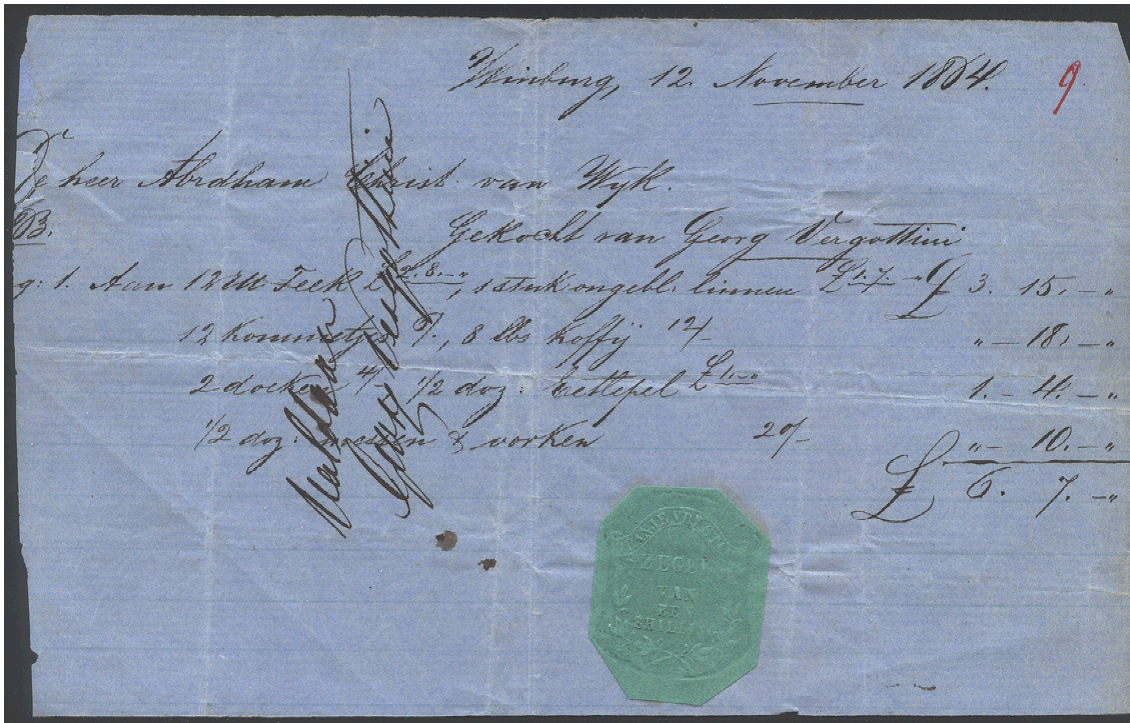 Winburg, 12 November 1864.
9.
De heer Abraham Christ. van Wyk.
Gekocht van Georg Vergottini
1. Aan 12 Ell Teek £2.8.-„, 1 stuk ongebl: linnen £1.7.-„ £ 3. 15.-„
12 kommetjes 6/-, 8 lbs Koffij 12/- „-18.-„
2 doeken 4/- 1/2 doz: £1.-„ 1.-4.-„
1/2 doz: messen & vorken „-10.-„
£ 6. 7.-„
Voldaan
Georg Vergottini
ZEGEL
VAN
SHILL